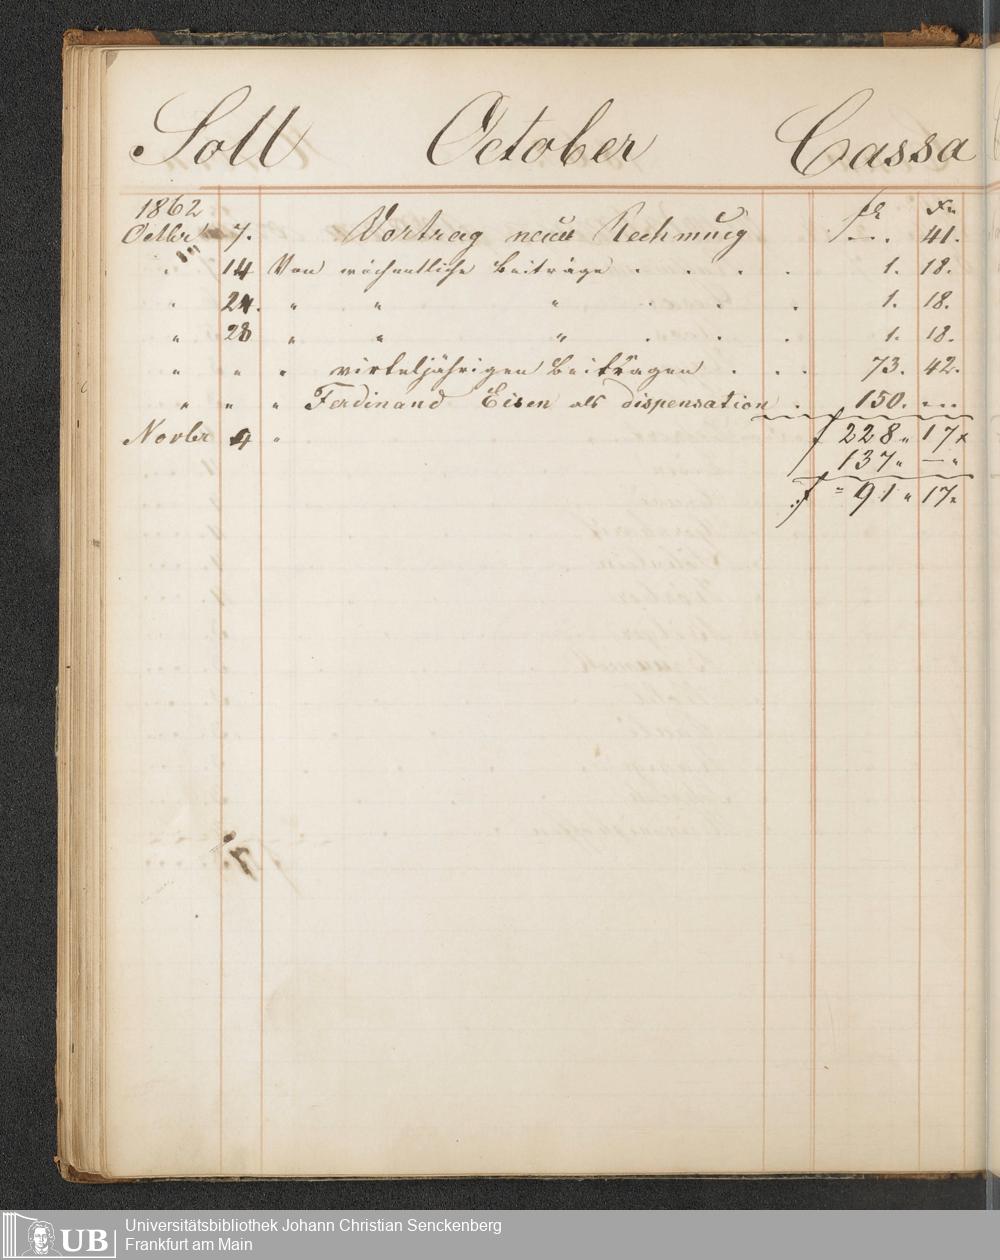 Soll October Cassa
1862 fl Xr
Octbr 7. " Vortrag neuer Rechnung —. 41.
" 14 Von wöchentliche Beiträge . . . . 1. 18.
" 21. " " " . . . 1. 18.
" 28 " " " . . . 1. 18.
" " " virteljährigen Beiträgen . . . 73. 42.
" " " Ferdinand Eisen als dispensation . 150. ...
Novbr 4 " f 228 " 17 x
137 " — "
f = 91 " 17 "
UB
Universitätsbibliothek Johann Christian Senckenberg
Frankfurt am Main